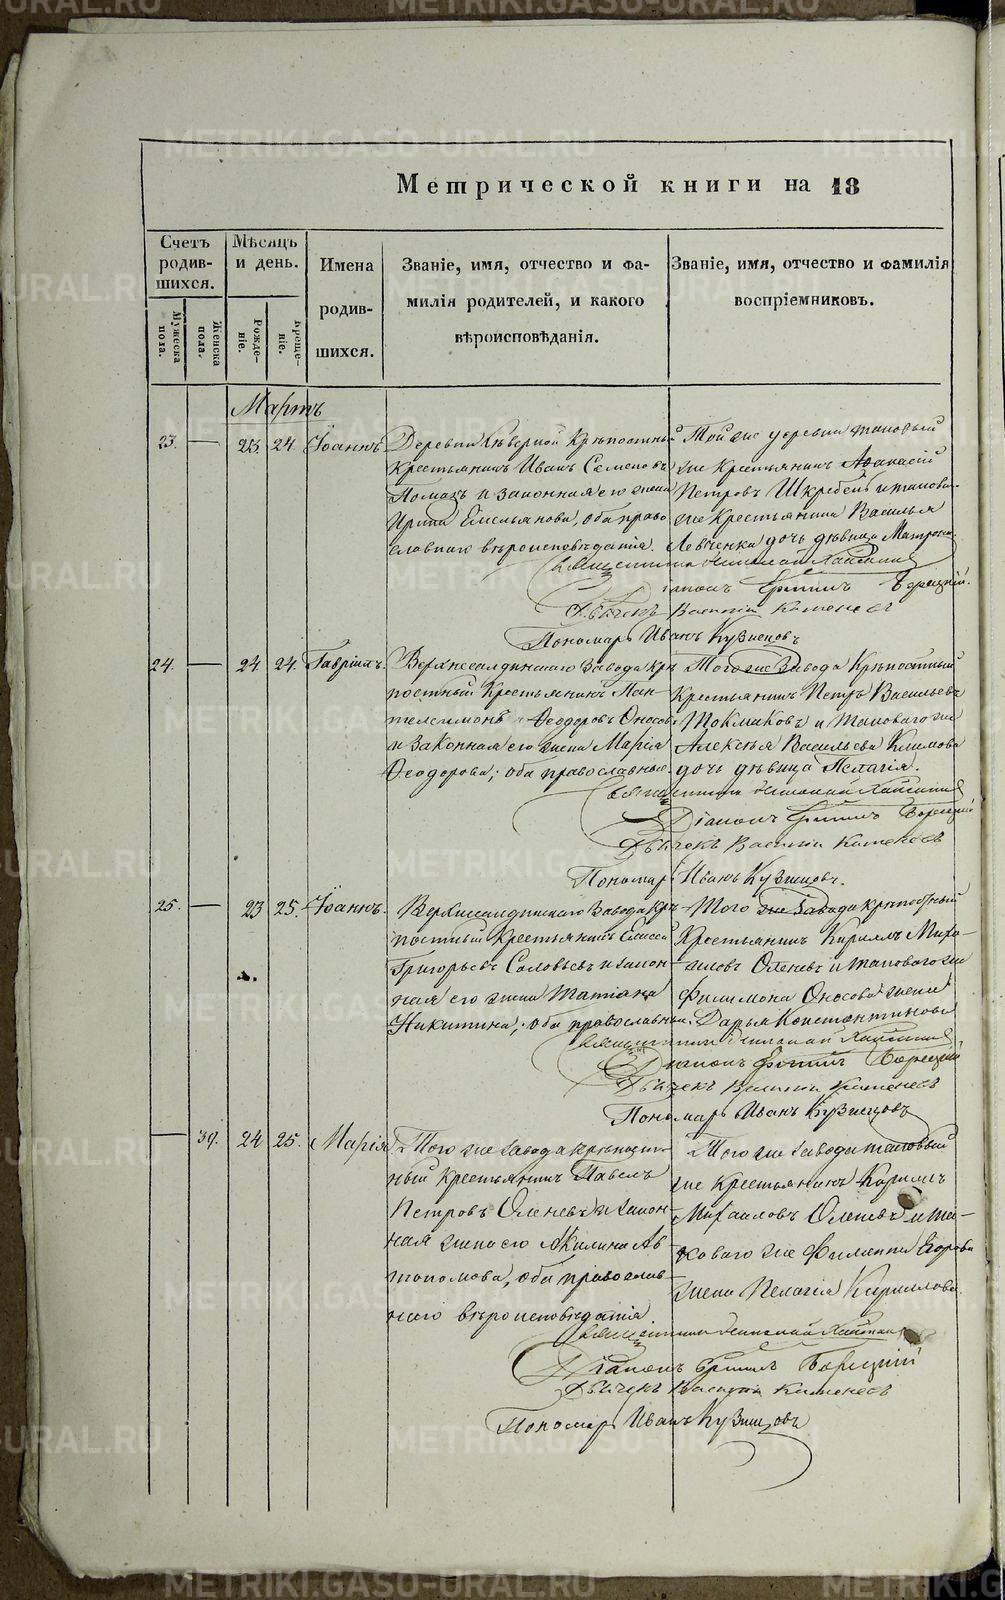 METRIKI.GASO-URAL.RU
Метрической книги на 18
Счетъ родив-шихся.
Мужеска пола.
Женска пола.
Мѣсяцъ и день.
Рожде-ніе.
Креще-ніе.
Имена родив-шихся.
Званіе, имя, отчество и фа-
милія родителей, и какого
вѣроисповѣданія.
Званіе, имя, отчество и фамилія
воспріемниковъ.
Мартъ
23. — 23. 24 Іоаннъ
Деревни Сѣверной Крѣпостный
Крестьянинъ Иванъ Семеновъ
и законная его жена
Ирина Емельянова, оба право
славнаго вѣроисповѣданія.
Той же деревни таковый
же Крестьянинъ Аѳанасій
Петровъ и таков.
же Крестьянина Василья
Левченка дочь дѣвица Матрона
Священникъ
Діаконъ Борецкій.
Дьячекъ Василій Каменевъ
Пономарь Иванъ Кузнецовъ
24. — 24 24. Гавріилъ.
Верхнесалдинскаго Завода крѣ
постный Крестьянинъ Пан-
телеимонъ Ѳеодоровъ Оносовъ
и законная его жена Марія
Ѳеодорова, оба православные.
Того же Завода Крѣпостный
Крестьянинъ Петръ Васильевъ
Токмаковъ и таковаго же
Алексѣя Васильева Климова
дочь дѣвица Пелагія.
Священникъ
Діаконъ Борецкій
Дьячекъ Василій Каменевъ
Пономарь Иванъ Кузнецовъ.
25. — 23 25. Іоаннъ.
Верхнесалдинскаго Завода крѣ-
постный Крестьянинъ Елисей
Григорьевъ Соловьевъ и закон-
ная его жена Татіана
Никитина, оба православныи.
Того же Завода крѣпостный
Крестьянинъ Кириллъ Миха-
иловъ Оленевъ и таковаго же
Филимона Оносова жена
Дарья Константинова
Священникъ
Діаконъ Борецкій
Дьячекъ Василій Каменевъ
Пономарь Иванъ Кузнецовъ
— 39. 24 25. Марія
Того же завода крѣпост-
ный Крестьянинъ Павелъ
Петровъ Оленевъ и закон-
ная жена его Акилина Ав
тономова, оба православ-
наго вѣроисповѣданія.
Того же завода таковый
же Крестьянинъ Кириллъ
Михаиловъ Оленевъ и та-
коваго же Филиппа Егорова
жена Пелагія Кириллова.
Священникъ
Діаконъ Борецкій
Дьячекъ Василій Каменевъ
Пономарь Иванъ Кузнецовъ